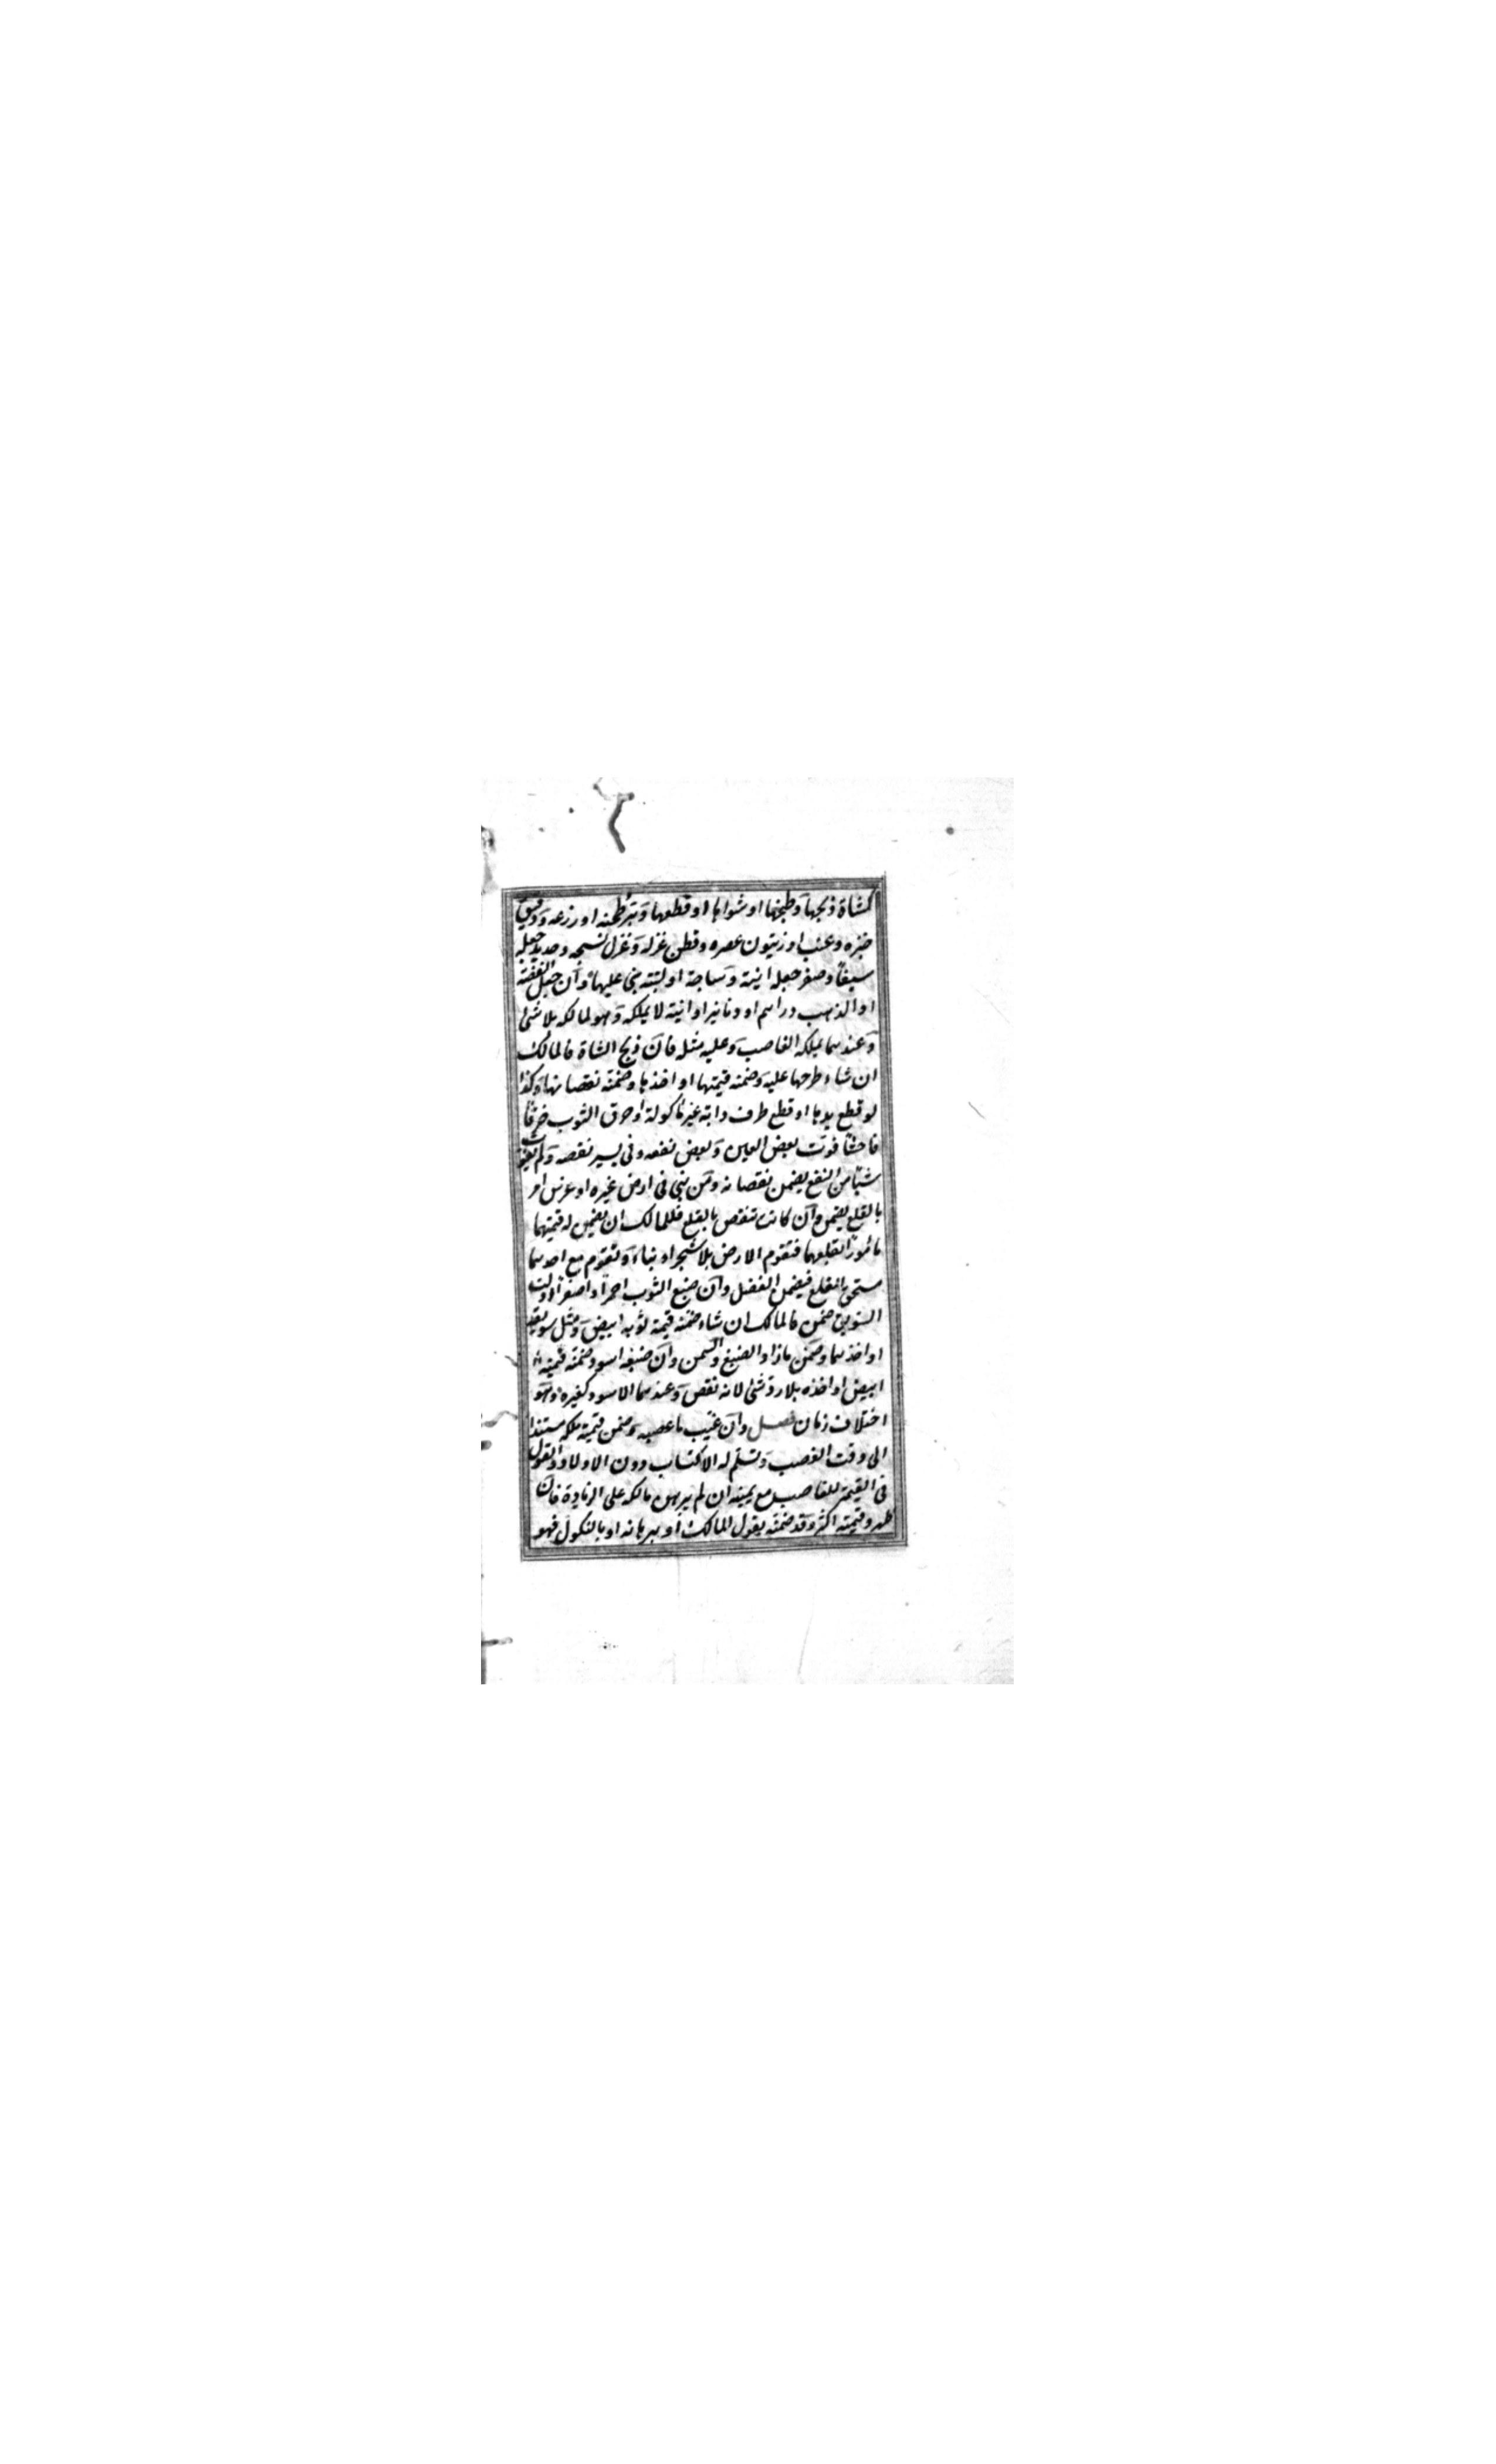 كشاة ذبحها وطبخها او شواها او قطعها وبر طحنه او زرعه ودقيق
خبزه وعنب او زيتون عصره وقطن غزله وغزل نسجه وحديد جعله
سيفا وصفر جعله انية وساجة او لبنة بنى عليها وان جعل الفضة
او الذهب دراهم او دنانير او انية لا يملكه وهو لمالكه بلا شئ
وعندهما يملكه الغاصب وعليه مثله فان ذبح الشاة فالمالك
ان شاء طرحها عليه وضمنه قيمتها او اخذها وضمنه نقصانها وكذا
لو قطع يدها او قطع طرف دابة غير مأكولة او خرق الثوب خرقا
فاحشا فوت بعض العين وبعض نفعه وفى يسير نقصه ولم يفوت
شيئا من النفع يضمن نقصانه ومن بنى فى ارض غيره او غرس امر
بالقلع يضمن وان كانت تنقص بالقلع فللمالك ان يضمن له قيمتهما
مأمورا بقلعهما فتقوم الارض بلا شجر او بناء وتقوم مع احدهما
مستحق القلع فيضمن الفضل وان صبغ الثوب احمر او اصفر او لت
السويق بسمن فالمالك ان شاء ضمنه قيمة ثوبه ابيض ومثل سويقه
او اخذهما وضمن ما زاد الصبغ والسمن وان صبغه اسود ضمنه قيمته
ابيض او اخذه بلا رد شئ لانه نقص وعندهما الاسود كغيره وهو
اختلاف زمان فصل وان غيب ما غصبه وضمن قيمته ملكه مستندا
الى وقت الغصب وتسلم له الاكتساب دون الاولاد والقول
فى القيمة للغاصب مع يمينه ان لم يبرهن مالكه على الزيادة فان
ظهر وقيمته اكثر وقد ضمنه بقول المالك او ببرهانه او بالنكول فهو